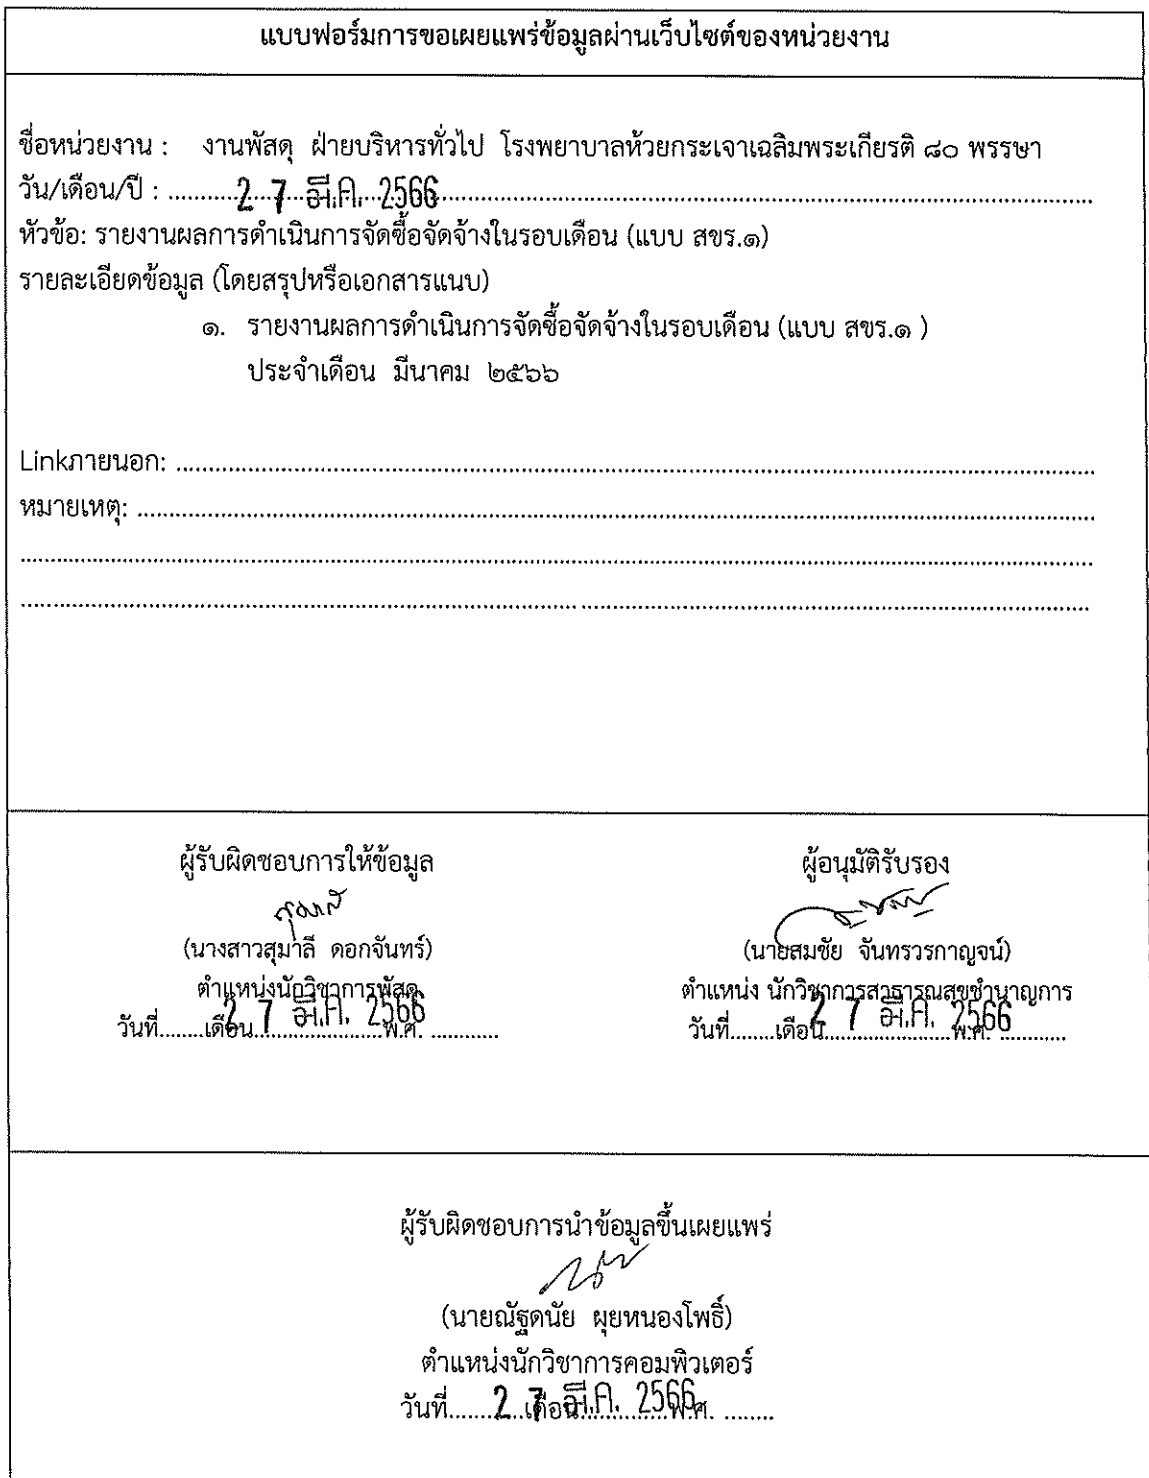 แบบฟอร์มการขอเผยแพร่ข้อมูลผ่านเว็บไซต์ของหน่วยงาน
ชื่อหน่วยงาน : งานพัสดุ ฝ่ายบริหารทั่วไป โรงพยาบาลห้วยกระเจาเฉลิมพระเกียรติ ๘๐ พรรษา
วัน/เดือน/ปี : ..........2 7 มี.ค. 2566..........
หัวข้อ: รายงานผลการดำเนินการจัดซื้อจัดจ้างในรอบเดือน (แบบ สขร.๑)
รายละเอียดข้อมูล (โดยสรุปหรือเอกสารแนบ)
๑. รายงานผลการดำเนินการจัดซื้อจัดจ้างในรอบเดือน (แบบ สขร.๑ )
ประจำเดือน มีนาคม ๒๕๖๖
Linkภายนอก: ..........
หมายเหตุ: ..........
ผู้รับผิดชอบการให้ข้อมูล
(นางสาวสุมาลี ดอกจันทร์)
ตำแหน่งนักวิชาการพัสดุ
วันที่........เดือน....................พ.ศ. ...........
2 7 มี.ค. 2566
ผู้อนุมัติรับรอง
(นายสมชัย จันทรวรกาญจน์)
ตำแหน่ง นักวิชาการสาธารณสุขชำนาญการ
วันที่........เดือน....................พ.ศ. ...........
2 7 มี.ค. 2566
ผู้รับผิดชอบการนำข้อมูลขึ้นเผยแพร่
(นายณัฐดนัย ผุยหนองโพธิ์)
ตำแหน่งนักวิชาการคอมพิวเตอร์
วันที่............เดือน...............พ.ศ. ........
2 7 มี.ค. 2566